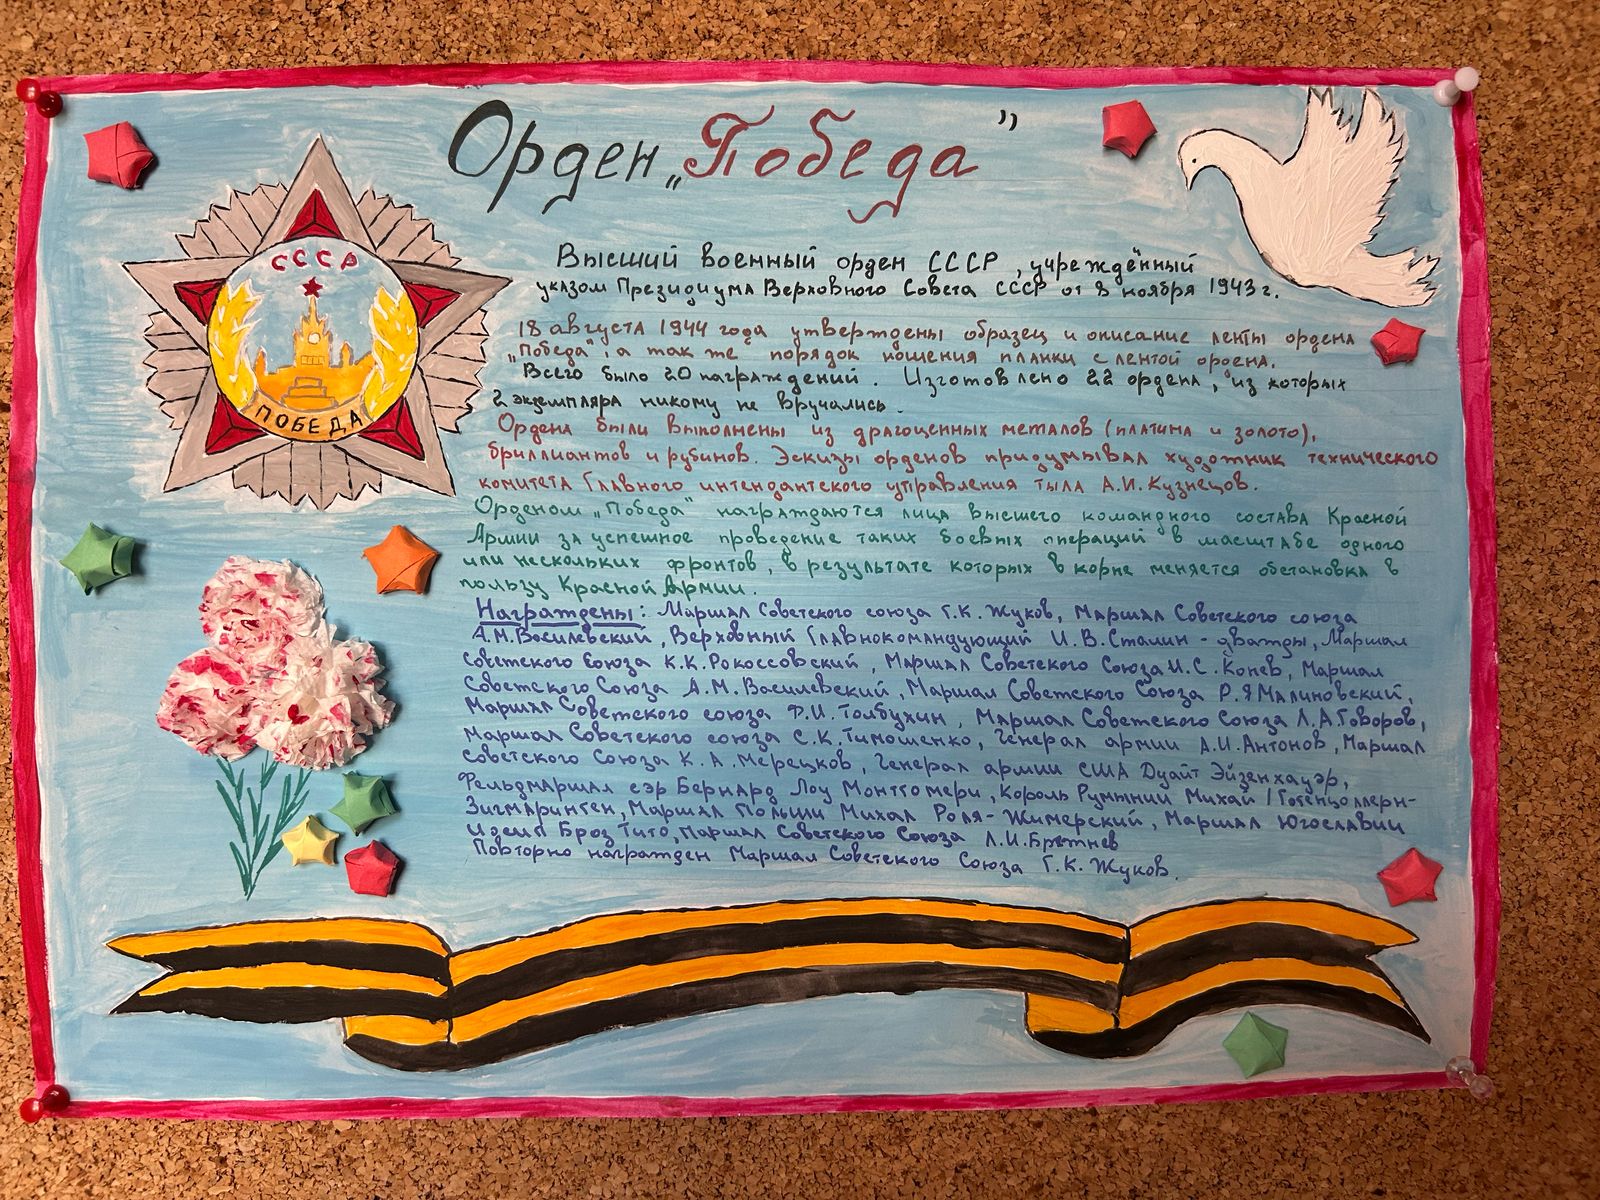 Орден „Победа”
СССР
ПОБЕДА
Высший военный орден СССР, учреждённый
указом Президиума Верховного Совета СССР от 8 ноября 1943 г.
18 августа 1944 года утверждены образец и описание ленты ордена
„Победа", а так же порядок ношения планки с лентой ордена.
Всего было 20 награждений. Изготовлено 22 ордена, из которых
2 экземпляра никому не вручались.
Ордена были выполнены из драгоценных металов (платина и золото),
бриллиантов и рубинов. Эскизы орденов придумывал художник технического
комитета Главного интендантского управления тыла А.И. Кузнецов.
Орденом „Победа" награждаются лица высшего командного состава Красной
Армии за успешное проведение таких боевых операций в масштабе одного
или нескольких фронтов, в результате которых в корне меняется обстановка в
пользу Красной Армии.
Награждены: Маршал Советского союза Г.К. Жуков, Маршал Советского союза
А.М. Василевский, Верховный Главнокомандующий И.В. Сталин - дважды, Маршал
Советского Союза К.К. Рокоссовский, Маршал Советского Союза И.С. Конев, Маршал
Советского Союза А.М. Василевский, Маршал Советского Союза Р.Я Малиновский,
Маршал Советского союза Ф.И. Толбухин, Маршал Советского Союза Л.А Говоров,
Маршал Советского союза С.К. Тимошенко, Генерал армии А.И. Антонов, Маршал
Советского Союза К.А. Мерецков, Генерал армии США Дуайт Эйзенхауэр,
Фельдмаршал сэр Бернард Лоу Монтгомери, Король Румынии Михай I Гогенцоллерн-
Зигмаринген, Маршал Польши Михал Роля-Жимерский, Маршал Югославии
Иосип Броз Тито, Маршал Советского Союза Л.И. Брежнев
Повторно награжден Маршал Советского Союза Г.К. Жуков.